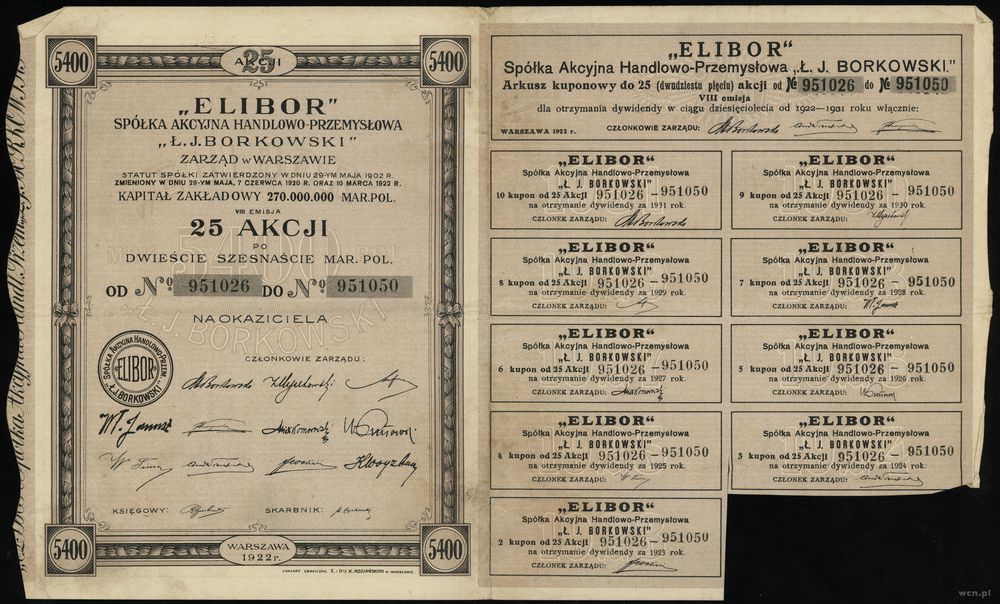 5400
25
AKCJI
5400
„ELIBOR"
SPÓŁKA AKCYJNA HANDLOWO-PRZEMYSŁOWA
„Ł.J.BORKOWSKI"
ZARZĄD w WARSZAWIE
STATUT SPÓŁKI ZATWIERDZONY W DNIU 29-YM MAJA 1902 R.
ZMIENIONY W DNIU 29-YM MAJA, 7 CZERWCA 1920 R. ORAZ 10 MARCA 1922 R.
KAPITAŁ ZAKŁADOWY 270.000.000 MAR.POL.
VIII EMISJA
25 AKCJI
PO
DWIEŚCIE SZESNAŚCIE MAR. POL.
OD № 951026 DO № 951050
NA OKAZICIELA
CZŁONKOWIE ZARZĄDU:
SPÓŁKA AKCYJNA HANDLOWO-PRZEM.
ELIBOR
„Ł.J. BORKOWSKI"
KSIĘGOWY:
SKARBNIK:
5400
WARSZAWA
1922 r.
5400
ZAKŁADY GRAFICZNE E. i Dra K. KOZIAŃSKICH w WARSZAWIE.
„ELIBOR"
Spółka Akcyjna Handlowo-Przemysłowa „Ł. J. BORKOWSKI."
Arkusz kuponowy do 25 (dwudziestu pięciu) akcji od № 951026 do № 951050
VIII emisja
dla otrzymania dywidendy w ciągu dziesięciolecia od 1922—1931 roku włącznie:
WARSZAWA 1922 r.
CZŁONKOWIE ZARZĄDU:
„ELIBOR"
Spółka Akcyjna Handlowo-Przemysłowa
„Ł. J. BORKOWSKI"
10 kupon od 25 Akcji 951026—951050
na otrzymanie dywidendy za 1931 rok.
CZŁONEK ZARZĄDU:
„ELIBOR"
Spółka Akcyjna Handlowo-Przemysłowa
„Ł. J. BORKOWSKI"
9 kupon od 25 Akcji 951026—951050
na otrzymanie dywidendy za 1930 rok.
CZŁONEK ZARZĄDU:
„ELIBOR"
Spółka Akcyjna Handlowo-Przemysłowa
„Ł. J. BORKOWSKI"
8 kupon od 25 Akcji 951026—951050
na otrzymanie dywidendy za 1929 rok.
CZŁONEK ZARZĄDU:
„ELIBOR"
Spółka Akcyjna Handlowo-Przemysłowa
„Ł. J. BORKOWSKI"
7 kupon od 25 Akcji 951026—951050
na otrzymanie dywidendy za 1928 rok.
CZŁONEK ZARZĄDU:
„ELIBOR"
Spółka Akcyjna Handlowo-Przemysłowa
„Ł. J. BORKOWSKI"
6 kupon od 25 Akcji 951026—951050
na otrzymanie dywidendy za 1927 rok.
CZŁONEK ZARZĄDU:
„ELIBOR"
Spółka Akcyjna Handlowo-Przemysłowa
„Ł. J. BORKOWSKI"
5 kupon od 25 Akcji 951026—951050
na otrzymanie dywidendy za 1926 rok.
CZŁONEK ZARZĄDU:
„ELIBOR"
Spółka Akcyjna Handlowo-Przemysłowa
„Ł. J. BORKOWSKI"
4 kupon od 25 Akcji 951026—951050
na otrzymanie dywidendy za 1925 rok.
CZŁONEK ZARZĄDU:
„ELIBOR"
Spółka Akcyjna Handlowo-Przemysłowa
„Ł. J. BORKOWSKI"
3 kupon od 25 Akcji 951026—951050
na otrzymanie dywidendy za 1924 rok.
CZŁONEK ZARZĄDU:
„ELIBOR"
Spółka Akcyjna Handlowo-Przemysłowa
„Ł. J. BORKOWSKI"
2 kupon od 25 Akcji 951026—951050
na otrzymanie dywidendy za 1923 rok.
CZŁONEK ZARZĄDU:
wcn.pl